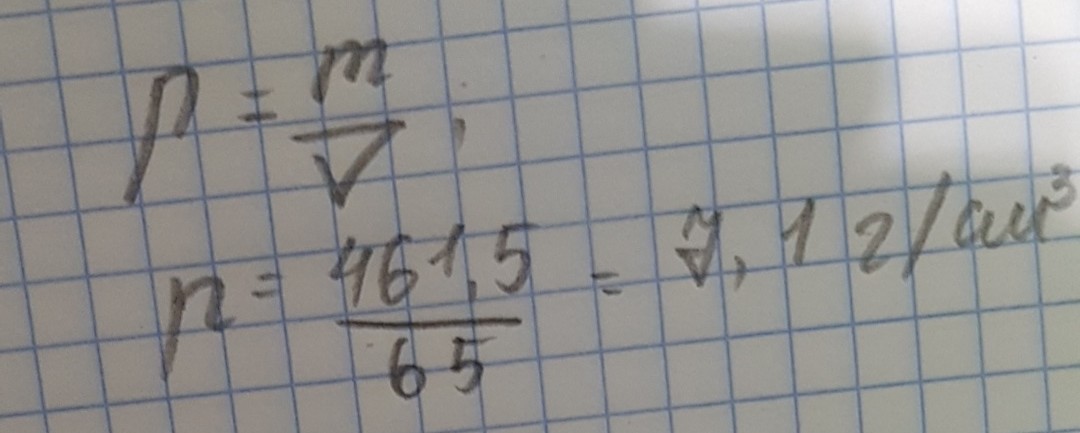 ρ = m/V ;
ρ = 461,5/65 = 7,1 г/см³